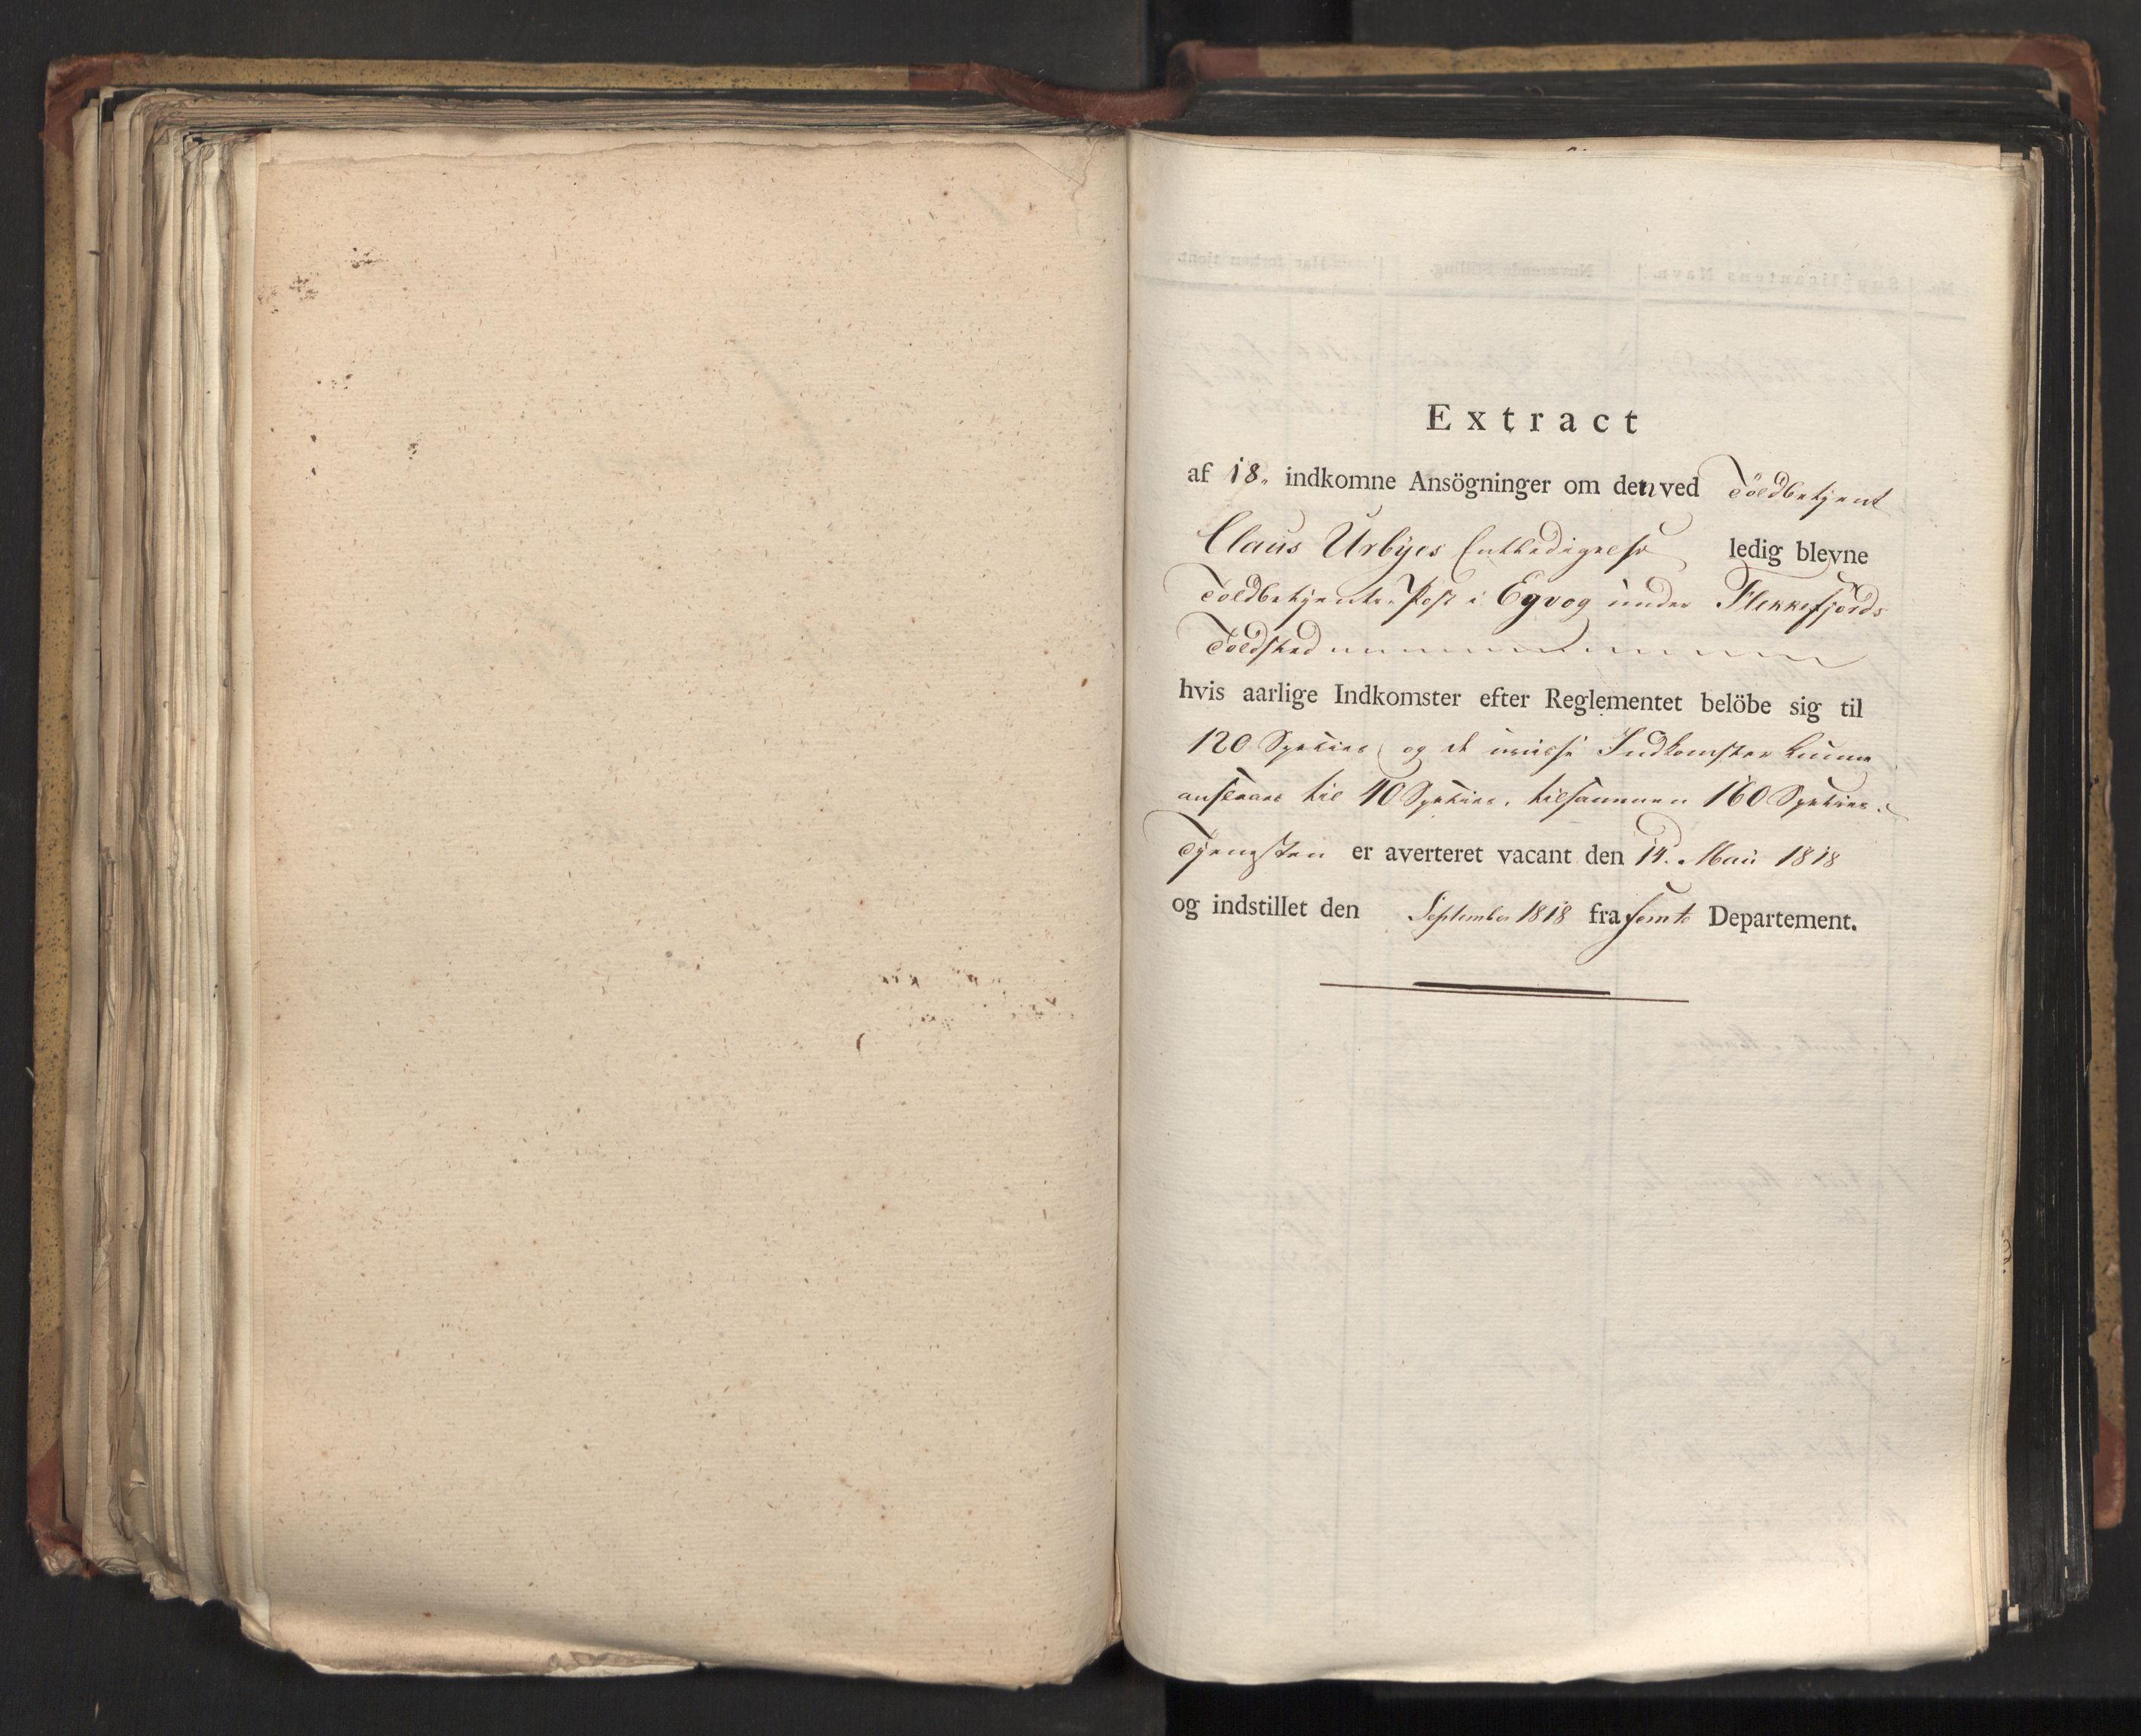 Extract
af 18. indkomne Ansögninger om den ved Toldbetjent
Claus Urbyes Entledigelse ledig blevne
Toldbetjente-Post i Egvog under Flekkefjords
Toldsted
hvis aarlige Indkomster efter Reglementet belöbe sig til
120 Species og de uvisse Indkomster kunne
ansees til 40 Species, tilsammen 160 Species.
Tjenesten er averteret vacant den 14. Maii 1818
og indstillet den September 1818 fra femte Departement.